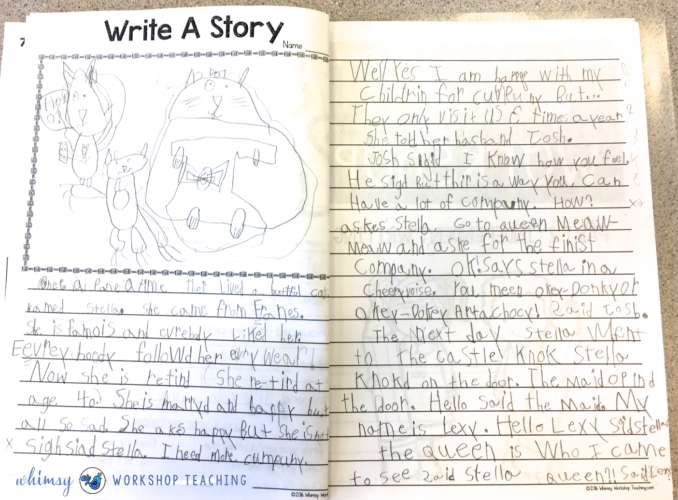 Write A Story
Name
Onec a pone a time ther lived a butted cat
named Stella. She came from Franes.
She is famais and evrebudy liked her.
Eevrey boody followd her evry wear!
Now she is retird She re-tird at
age 40. She is marryd and happy but
all so sad. She acks happy But she is not
x sigh siad Stella. I need more cumpuny.
whimsy WORKSHOP TEACHING
©2016 Whimsy Works
Well Yes I am happy with my
childrin for cumpuny But...
They only visit us 6 times a year
She told her hasband Josh.
Josh siaid I know how you feel.
He sigd But thir is a way you can
Have a lot of company. How?
askes Stella. Go to queen Meaw
Meaw and aske for the finist
Company. OK! says stella in a
Cheery voise. You meen okey-Donky or
okey-Dokey Artachocy! Zaid Josh.
The next day Stella Went
to the castley Knok Stella
Knokd on the door. The Maid opind
the door. Hello Said the Maid. My
name is Lexy. Hello Lexy sid stella
the queen is Who I came
to see Zaid Stella queen?! Said Lexy
©2016 Whimsy Workshop Teaching.com